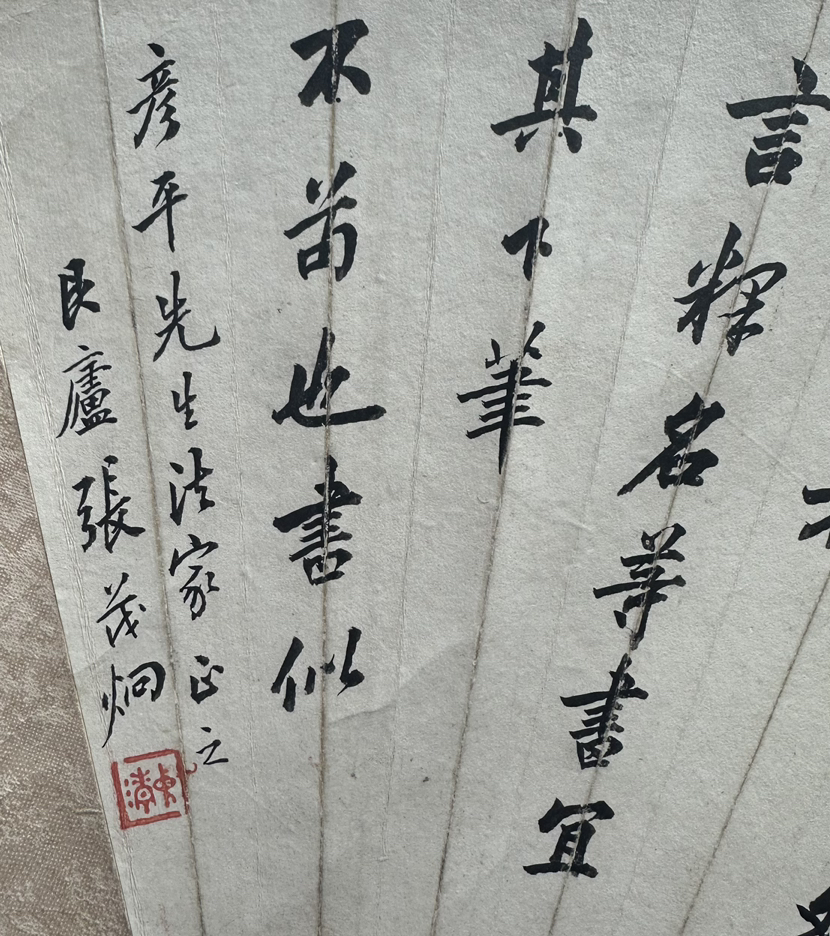 言釋名等書宜
其下筆
不苟也書似
彥平先生法家正之
艮廬張茂炯